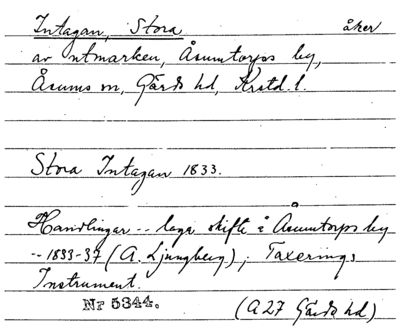 Intagan, Stora åker
av utmarken, Åsumtorps by,
Åsums sn, Gärds hd, Krstd. l.
Stora Intagan 1833.
Handlingar -- laga skifte i Åsumtorps by
-- 1833-37 (A. Ljungberg); Taxerings
Instrument.
Nr 5344. (A27 Gärds hd)